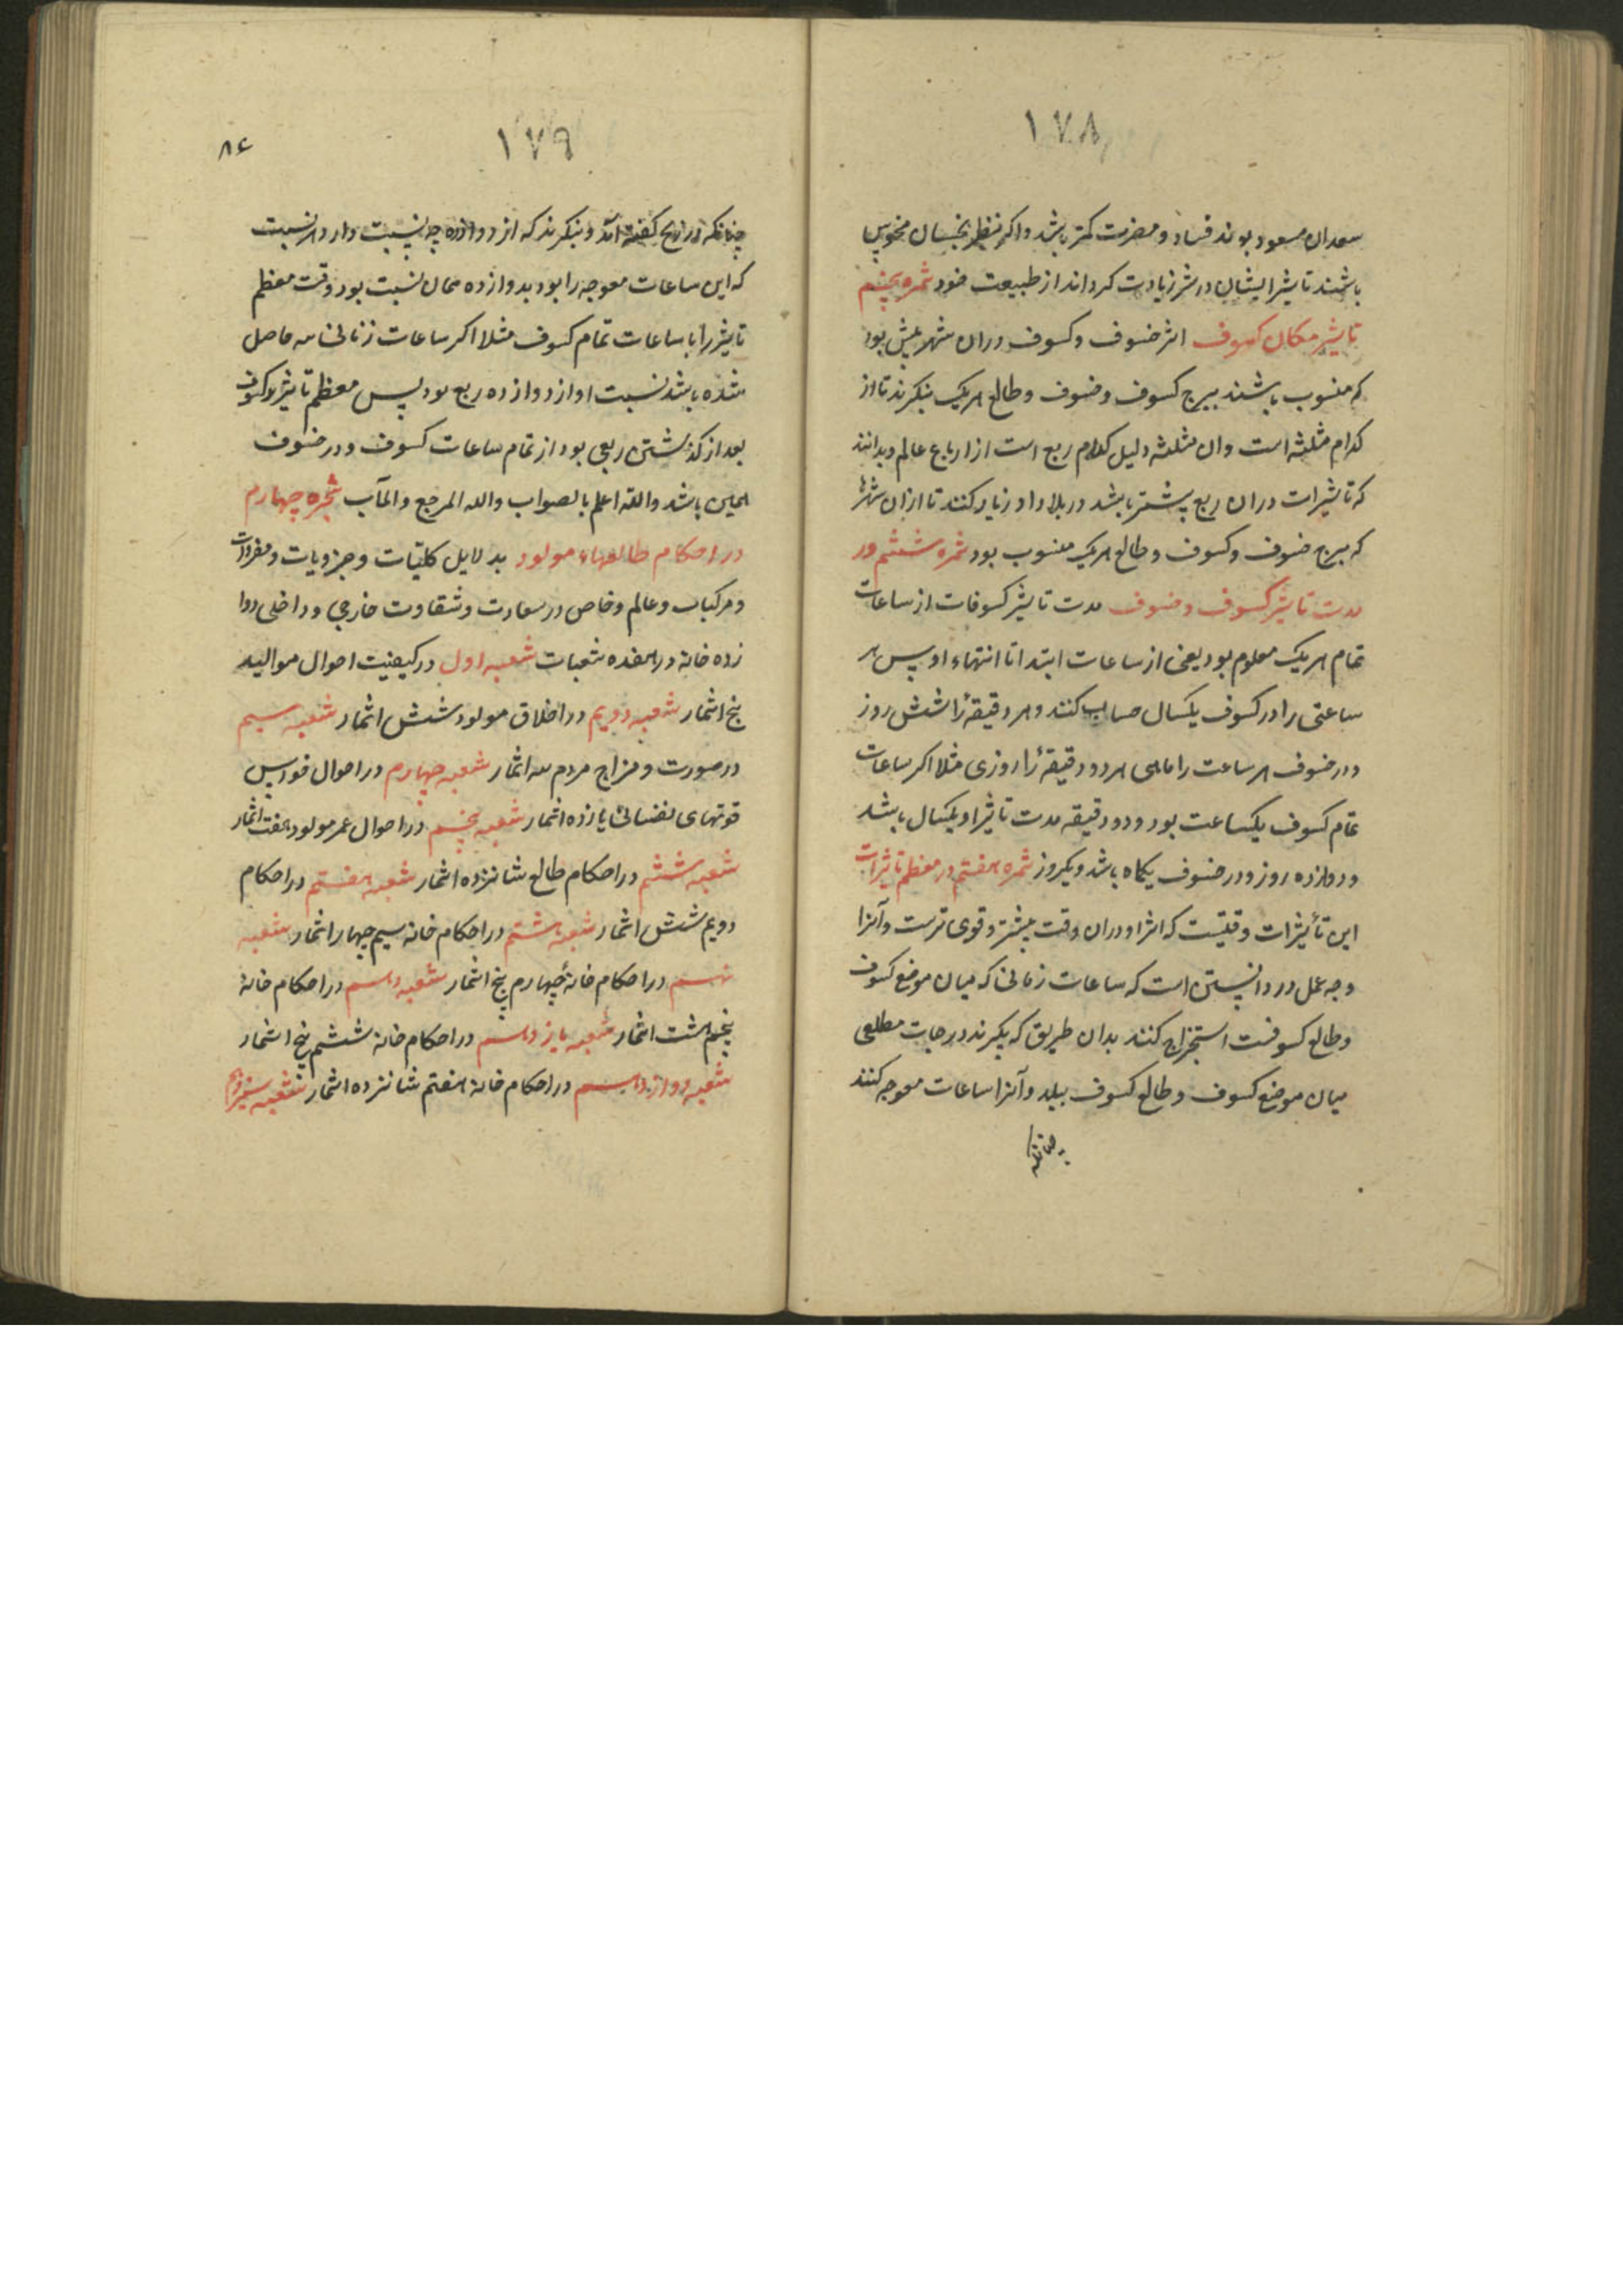 ١٧٨
سعدان مسعود بوند فساد و مضرت کمتر باشد و اکر بنظر نحسان منحوس
باشند تاثیر ایشان در شر زیادت کرداند از طبیعت خود ثمره پنجم
تاثیر مکان کسوف اثر خسوف و کسوف دران شهر بیش بود
که منسوب باشند ببرج کسوف و خسوف و طالع هریک بنکرند تا از
کدام مثلثه است وان مثلثه دلیل کدام ربع است از ارباع عالم و بدانند
که تاثیرات دران ربع بیشتر باشد در بلاد او زیاد کنند تا ازان شهرها
که ببرج خسوف و کسوف و طالع هریک منسوب بود ثمره ششم در
مدت تاثیر کسوف و خسوف مدت تاثیر کسوفات از ساعات
تمام هریک معلوم بود یعنی از ساعات ابتدا تا انتهاء او پس هر
ساعتی را در کسوف یکسال حساب کنند و هر دقیقۀ را شش روز
و در خسوف هر ساعت را ماهی هر دو دقیقۀ را روزی مثلا اکر ساعات
تمام کسوف یکساعت بود و دو دقیقه مدت تاثیر او یکسال باشد
و دوازده روز و در خسوف یکماه باشد و یکروز ثمره هفتم در معظم تاثیرات
این تأثیرات وقتیست که اثر او دران وقت بیشتر و قوی ترست و آنرا
وجه عمل در دانستن است که ساعات زمانی که میان موضع کسوف
و طالع کسوفست استخراج کنند بدان طریق که بکیرند درجات مطلعی
میان موضع کسوف و طالع کسوف ببلد و آنرا ساعات معوجه کنند
چنانکه
١٧٩
٨٤
چنانکه در زیج کفته اند و بنکرند که از دوازده چه نسبت دارد هر نسبت
که این ساعات معوجه را بود بدوازده همان نسبت بود وقت معظم
تاثیر را با ساعات تمام کسوف مثلا اکر ساعات زمانی سه حاصل
شده باشد نسبت او از دوازده ربع بود پس معظم تاثیر کسوف
بعد از کذشتن ربعی بود از تمام ساعات کسوف و در خسوف
همین باشد والله اعلم بالصواب والیه المرجع والمآب شجره چهارم
در احکام طالعهاء مولود بدلایل کلیّات و جزویات و مفردات
و مرکبات و عالم و خاص در سعادت و شقاوت خارجی و داخلی دوا
زده خانه در هفده شعبات شعبه اول در کیفیت احوال موالید
پنج اثمار شعبه دویم در اخلاق مولود شش اثمار شعبه سیم
در صورت و مزاج مردم سه اثمار شعبه چهارم در احوال حواس
قوتهای نفسانی یازده اثمار شعبه پنجم در احوال عمر مولود هفت اثمار
شعبه ششم در احکام طالع شانزده اثمار شعبه هفتم در احکام
دویم شش اثمار شعبه هشتم در احکام خانه سیم چهار اثمار شعبه
نهم در احکام خانۀ چهارم پنج اثمار شعبه دهم در احکام خانۀ
پنجم هشت اثمار شعبه یازدهم در احکام خانه ششم پنج اثمار
شعبه دوازدهم در احکام خانۀ هفتم شانزده اثمار شعبه سیزدهم